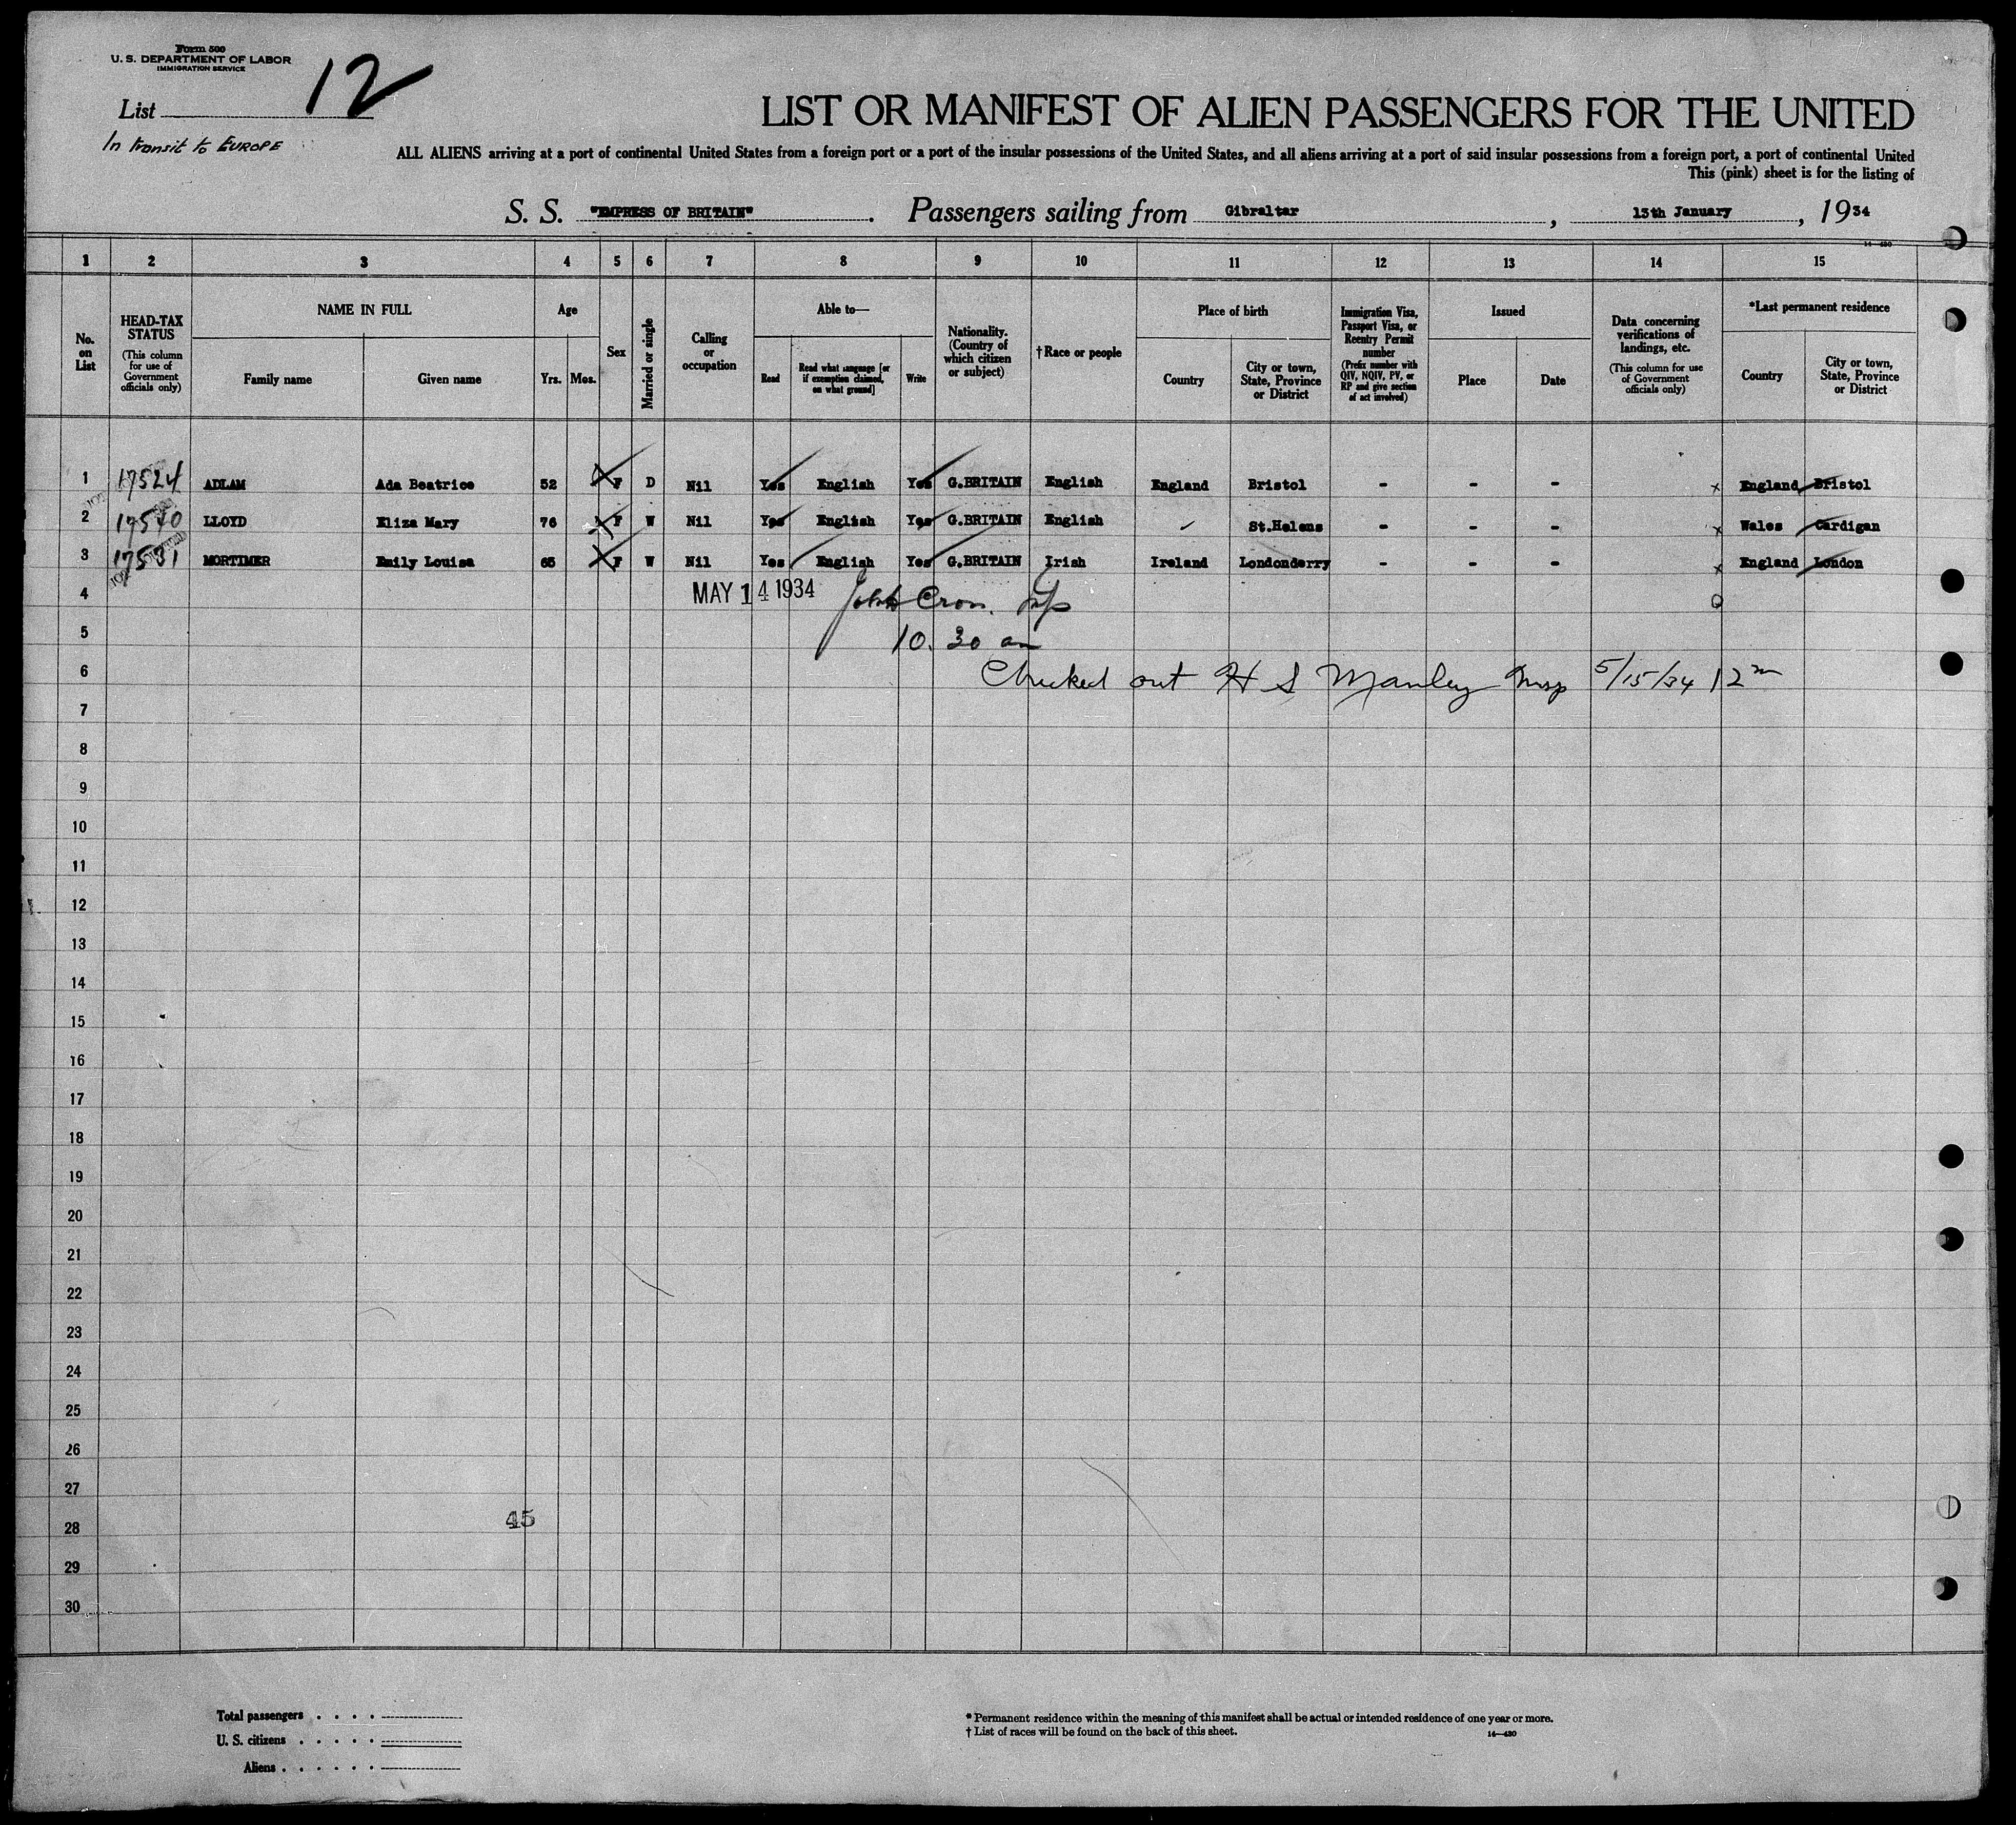 Form 500
U. S. DEPARTMENT OF LABOR
IMMIGRATION SERVICE
List 12
In transit to EUROPE
LIST OR MANIFEST OF ALIEN PASSENGERS FOR THE UNITED
ALL ALIENS arriving at a port of continental United States from a foreign port or a port of the insular possessions of the United States, and all aliens arriving at a port of said insular possessions from a foreign port, a port of continental United
This (pink) sheet is for the listing of
S. S. "EMPRESS OF BRITAIN". Passengers sailing from Gibraltar, 13th January, 1934
14—430
1 2 3 4 5 6 7 8 9 10 11 12 13 14 15
No. on List
HEAD-TAX STATUS (This column for use of Government officials only)
NAME IN FULL
Family name Given name
Age
Yrs. Mos.
Sex
Married or single
Calling or occupation
Able to—
Read Read what language [or if exemption claimed, on what ground] Write
Nationality. (Country of which citizen or subject)
†Race or people
Place of birth
Country City or town, State, Province or District
Immigration Visa, Passport Visa, or Reentry Permit number (Prefix number with QIV, NQIV, PV, or RP and give section of act involved)
Issued
Place Date
Data concerning verifications of landings, etc. (This column for use of Government officials only)
*Last permanent residence
Country City or town, State, Province or District
1 17524 ADLAM Ada Beatrice 52 F D Nil Yes English Yes G.BRITAIN English England Bristol - - - x England Bristol
2 17540 LLOYD Eliza Mary 76 F W Nil Yes English Yes G.BRITAIN English St.Helens - - - x Wales Cardigan
3 17531 MORTIMER Emily Louisa 65 F W Nil Yes English Yes G.BRITAIN Irish Ireland Londonderry - - - x England London
4 MAY 14 1934 Cron.
5 10.30 am
6 Checked out H S Manley Insp 5/15/34 12 m
7
8
9
10
11
12
13
14
15
16
17
18
19
20
21
22
23
24
25
26
27
28 45
29
30
Total passengers . . . .
U. S. citizens . . . . .
Aliens . . . . . .
* Permanent residence within the meaning of this manifest shall be actual or intended residence of one year or more.
† List of races will be found on the back of this sheet.
14—430